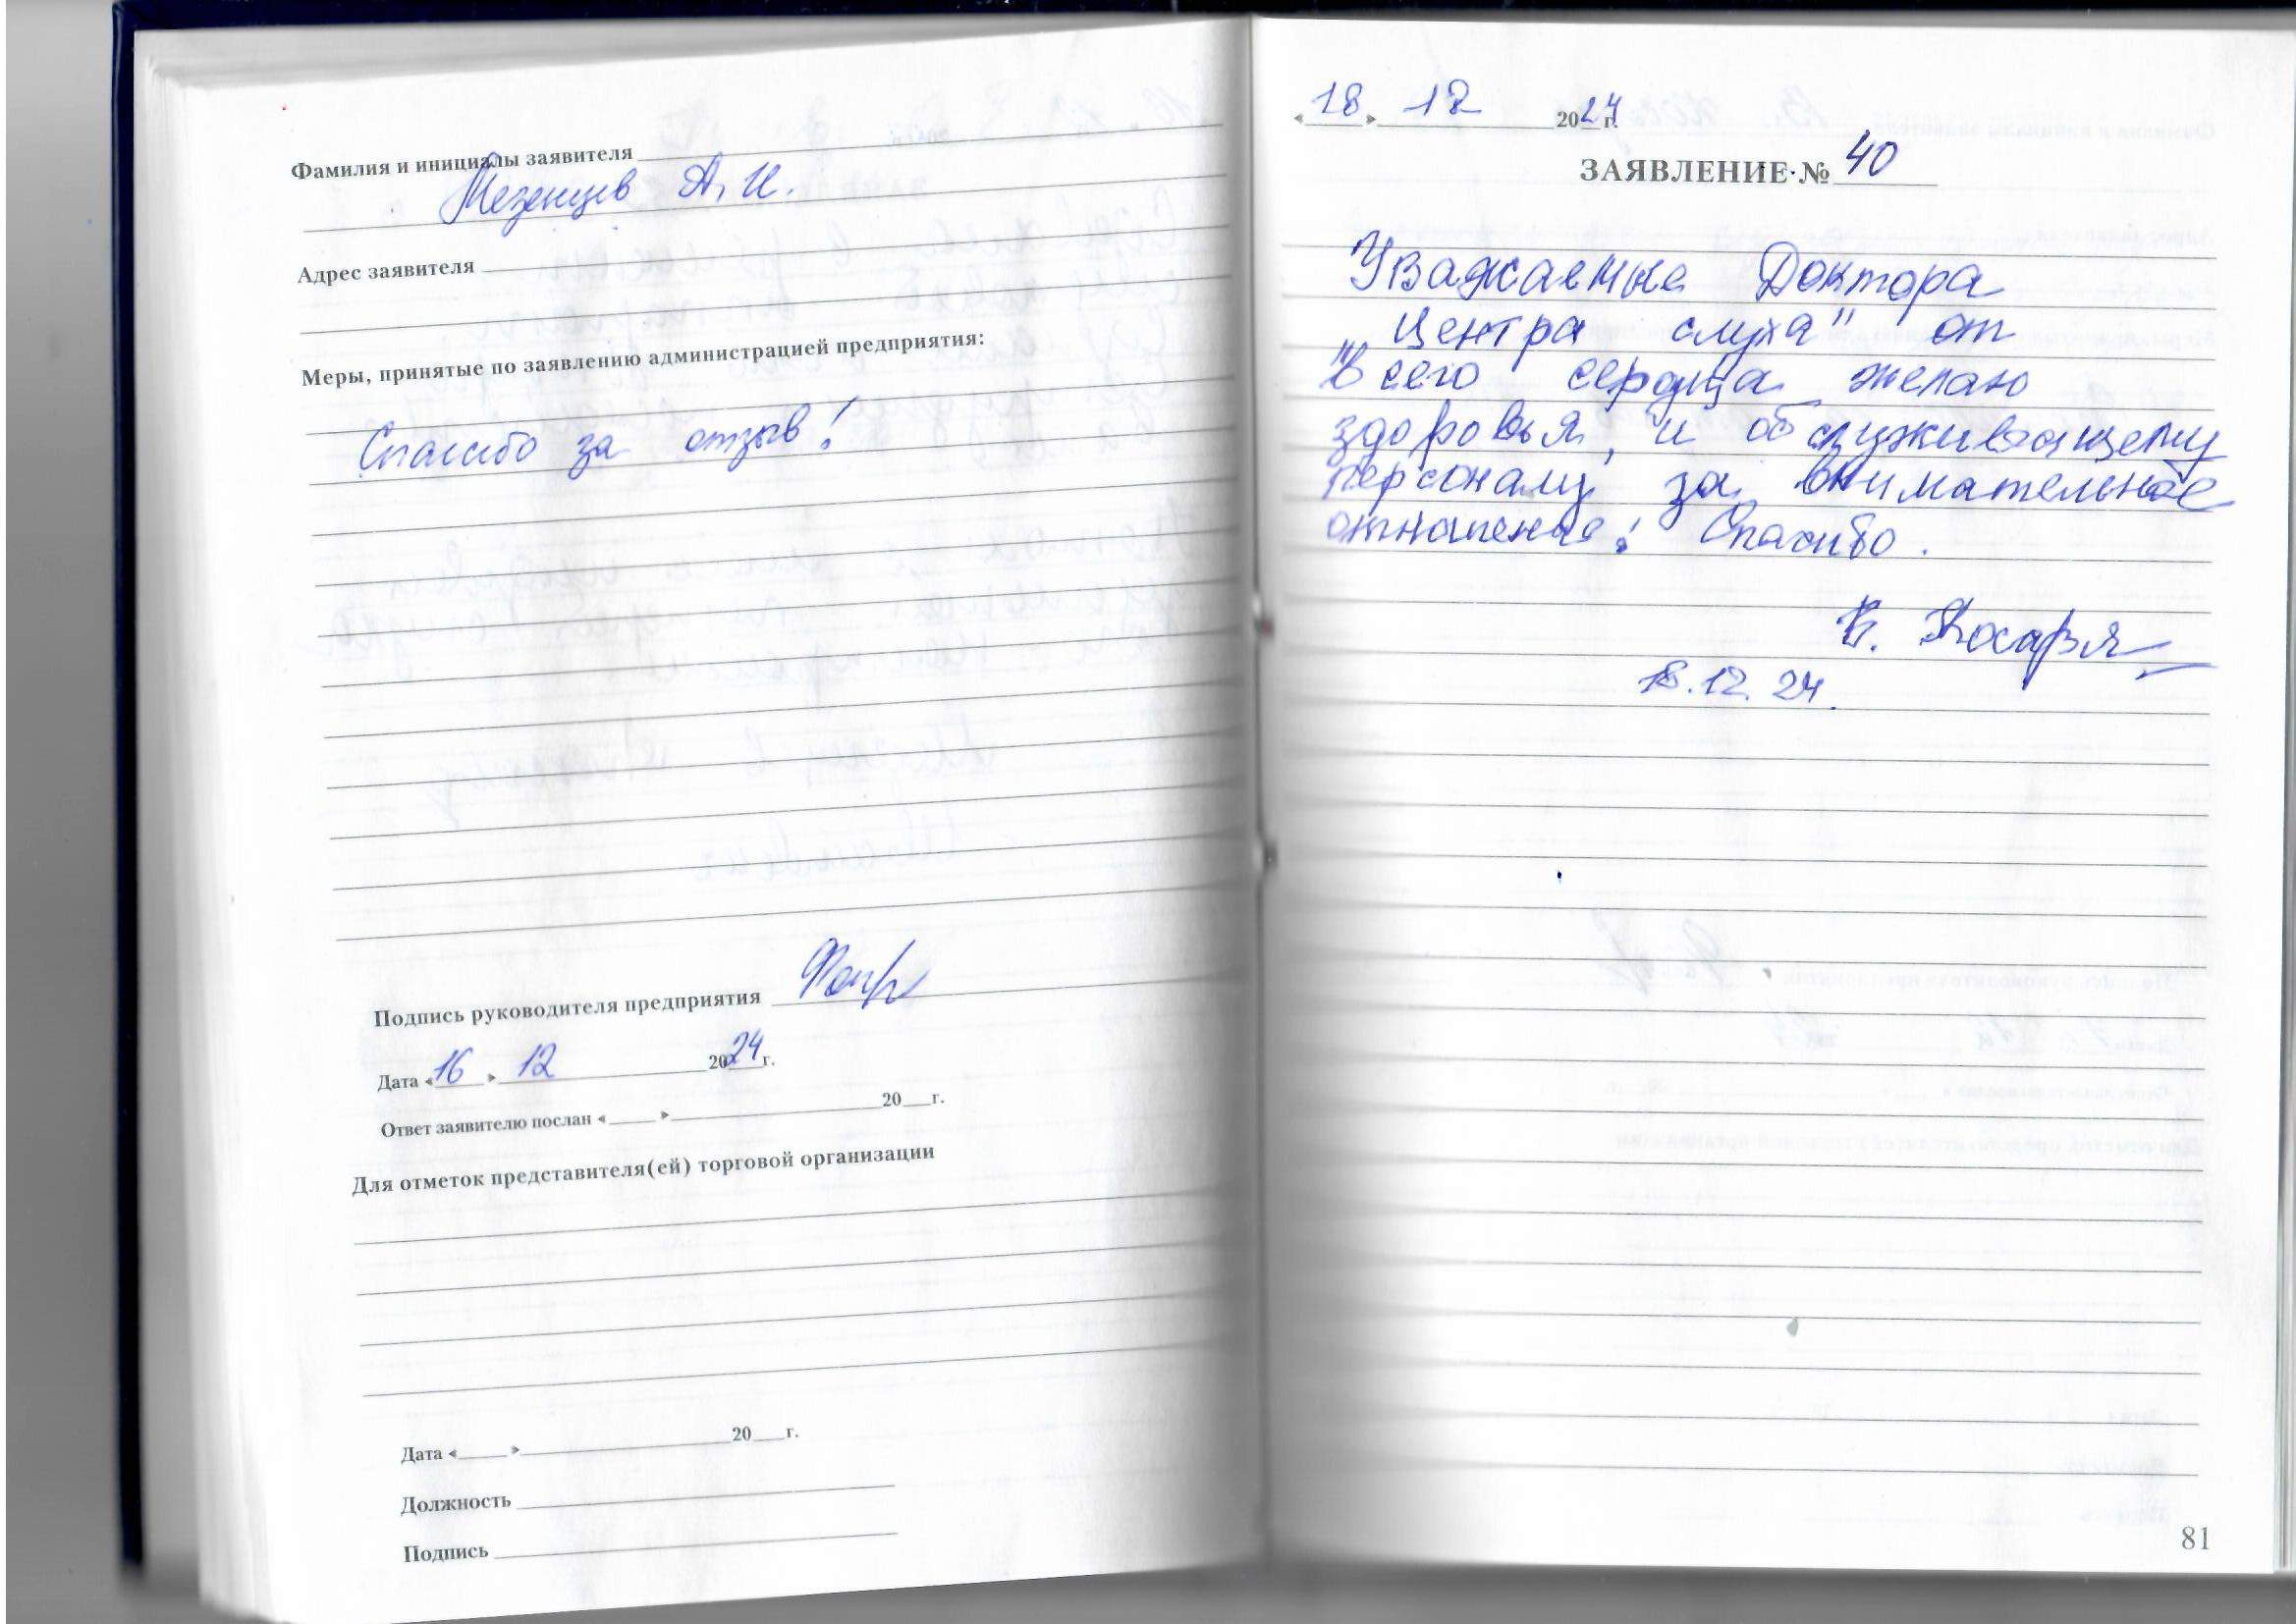 Фамилия и инициалы заявителя
Мезенцев А. И.
Адрес заявителя
Меры, принятые по заявлению администрацией предприятия:
Спасибо за отзыв!
Подпись руководителя предприятия
Дата «16» 12 2024 г.
Ответ заявителю послан «____» ____ 20__г.
Для отметок представителя(ей) торговой организации
Дата «____» ____ 20__г.
Должность
Подпись
«18» 12 2024 г.
ЗАЯВЛЕНИЕ № 40
Уважаемые Доктора
Центра слуха" от
"Всего сердца желаю
здоровья, и обслуживающему
персоналу за внимательное
отношение! Спасибо.
В.
18.12.24.
81